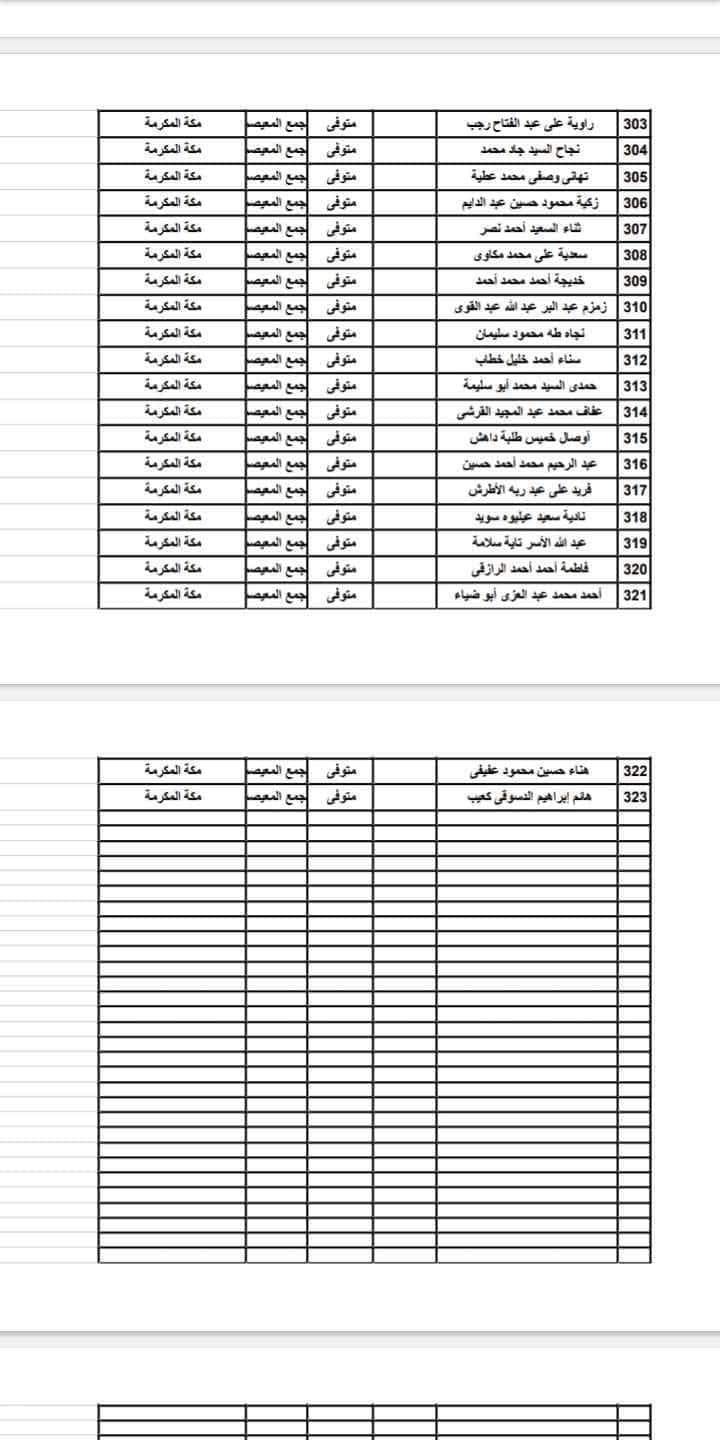 303 راوية على عبد الفتاح رجب متوفى جمع المعيص مكة المكرمة
304 نجاح السيد جاد محمد متوفى جمع المعيص مكة المكرمة
305 تهانى وصفى محمد عطية متوفى جمع المعيص مكة المكرمة
306 زكية محمود حسين عبد الدايم متوفى جمع المعيص مكة المكرمة
307 ثناء السعيد أحمد نصر متوفى جمع المعيص مكة المكرمة
308 سعدية على محمد مكاوى متوفى جمع المعيص مكة المكرمة
309 خديجة أحمد محمد أحمد متوفى جمع المعيص مكة المكرمة
310 زمزم عبد البر عبد الله عبد القوى متوفى جمع المعيص مكة المكرمة
311 نجاه طه محمود سليمان متوفى جمع المعيص مكة المكرمة
312 سناء أحمد خليل خطاب متوفى جمع المعيص مكة المكرمة
313 حمدى السيد محمد أبو سليمة متوفى جمع المعيص مكة المكرمة
314 عفاف محمد عبد المجيد القرشى متوفى جمع المعيص مكة المكرمة
315 أوصال خميس طلبة داهش متوفى جمع المعيص مكة المكرمة
316 عبد الرحيم محمد أحمد حسين متوفى جمع المعيص مكة المكرمة
317 فريد على عبد ربه الأطرش متوفى جمع المعيص مكة المكرمة
318 نادية سعيد عيليوه سويد متوفى جمع المعيص مكة المكرمة
319 عبد الله الأسر تاية سلامة متوفى جمع المعيص مكة المكرمة
320 فاطمة أحمد أحمد الرازقى متوفى جمع المعيص مكة المكرمة
321 أحمد محمد عبد العزى أبو ضياء متوفى جمع المعيص مكة المكرمة
322 هناء حسين محمود عفيفى متوفى جمع المعيص مكة المكرمة
323 هانم إبراهيم الدسوقى كعيب متوفى جمع المعيص مكة المكرمة